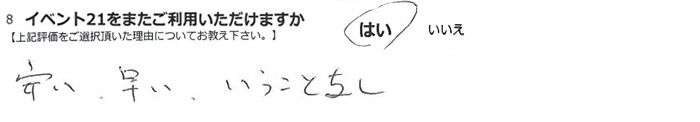 8 イベント21をまたご利用いただけますか はい いいえ
【上記評価をご選択頂いた理由についてお教え下さい。】
安い、早い、いうことなし